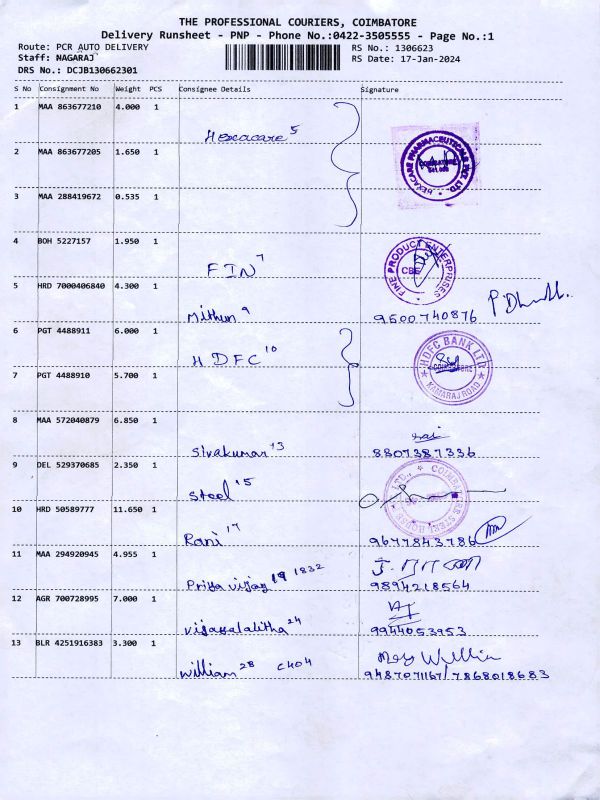 THE PROFESSIONAL COURIERS, COIMBATORE
Delivery Runsheet - PNP - Phone No.:0422-3505555 - Page No.:1
Route: PCR AUTO DELIVERY RS No.: 1306623
Staff: NAGARAJ RS Date: 17-Jan-2024
DRS No.: DCJB130662301
S No Consignment No Weight PCS Consignee Details Signature
1 MAA 863677210 4.000 1
Hexacare 5
2 MAA 863677205 1.650 1
HEXACARE PHARMACEUTICALS PVT. LTD. COIMBATORE
3 MAA 288419672 0.535 1
4 BOH 5227157 1.950 1
FIN 7 FINE PRODUCT ENTERPRISES CBE
5 HRD 7000406840 4.300 1
Mithun 9 9500740876
6 PGT 4488911 6.000 1
HDFC 10 HDFC BANK LTD COIMBATORE KAMARAJ ROAD
7 PGT 4488910 5.700 1
8 MAA 572040879 6.850 1
Sivakumar 13 8807387336
9 DEL 529370685 2.350 1
Steel 15 COIMBATORE STEEL HOUSE LTD.,
10 HRD 50589777 11.650 1
Rani 17 9677843786
11 MAA 294920945 4.955 1
Priya vijay 19 1832 9894218564
12 AGR 700728995 7.000 1
vijayalalitha 24 9944053953
13 BLR 4251916383 3.300 1
William 28 C404 9487071167/7868018683